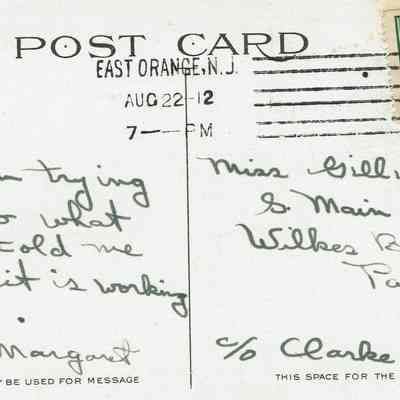 POST CARD
EAST ORANGE, N.J.
AUG 22-12
7— PM
trying
what
told me
it is working
Margaret
Y BE USED FOR MESSAGE
Miss Gilli
S. Main
Wilkes B
Pa
c/o Clarke
THIS SPACE FOR THE